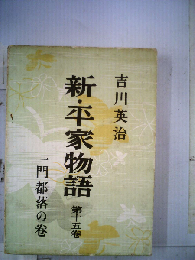 吉川英治
新・平家物語
第十五巻
一門都落の巻